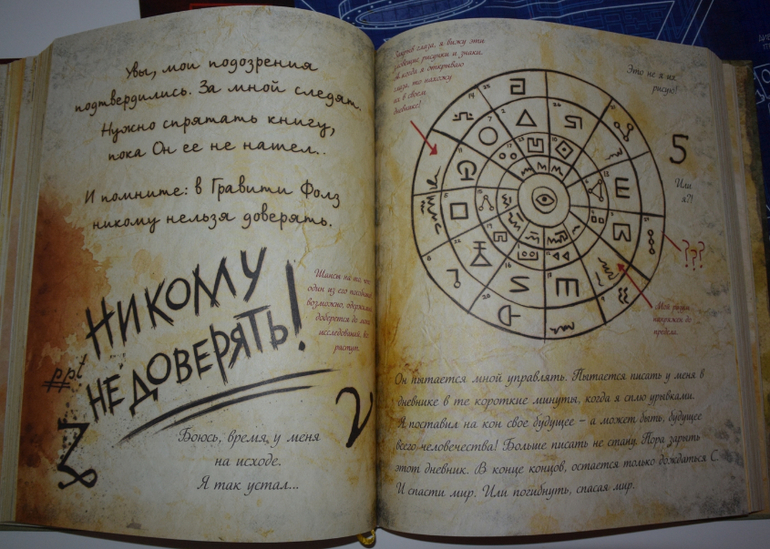 Увы, мои подозрения
подтвердились. За мной следят.
Нужно спрятать книгу,
пока Он ее не нашел...
И помните: в Гравити Фолз
никому нельзя доверять.
НИКОМУ
НЕ ДОВЕРЯТЬ!
Шанс на то, что
один из его
возможно,
доберется до
исследований,
Боюсь, время, у меня
на исходе.
Я так устал...
глаза, я вижу эти
рисунки и знаки.
А когда я открываю
глаза, то нахожу
их в своем
дневнике!
Это не я их
рисую!
5
Или
я?!
???
Мой разум
предела.
Он пытается мной управлять. Пытается писать у меня в
дневнике в те короткие минуты, когда я сплю урывками.
Я поставил на кон свое будущее – а может быть, будущее
всего человечества! Больше писать не стану. Пора зарыть
этот дневник. В конце концов, остается только дождаться С
И спасти мир. Или погибнуть, спасая мир.